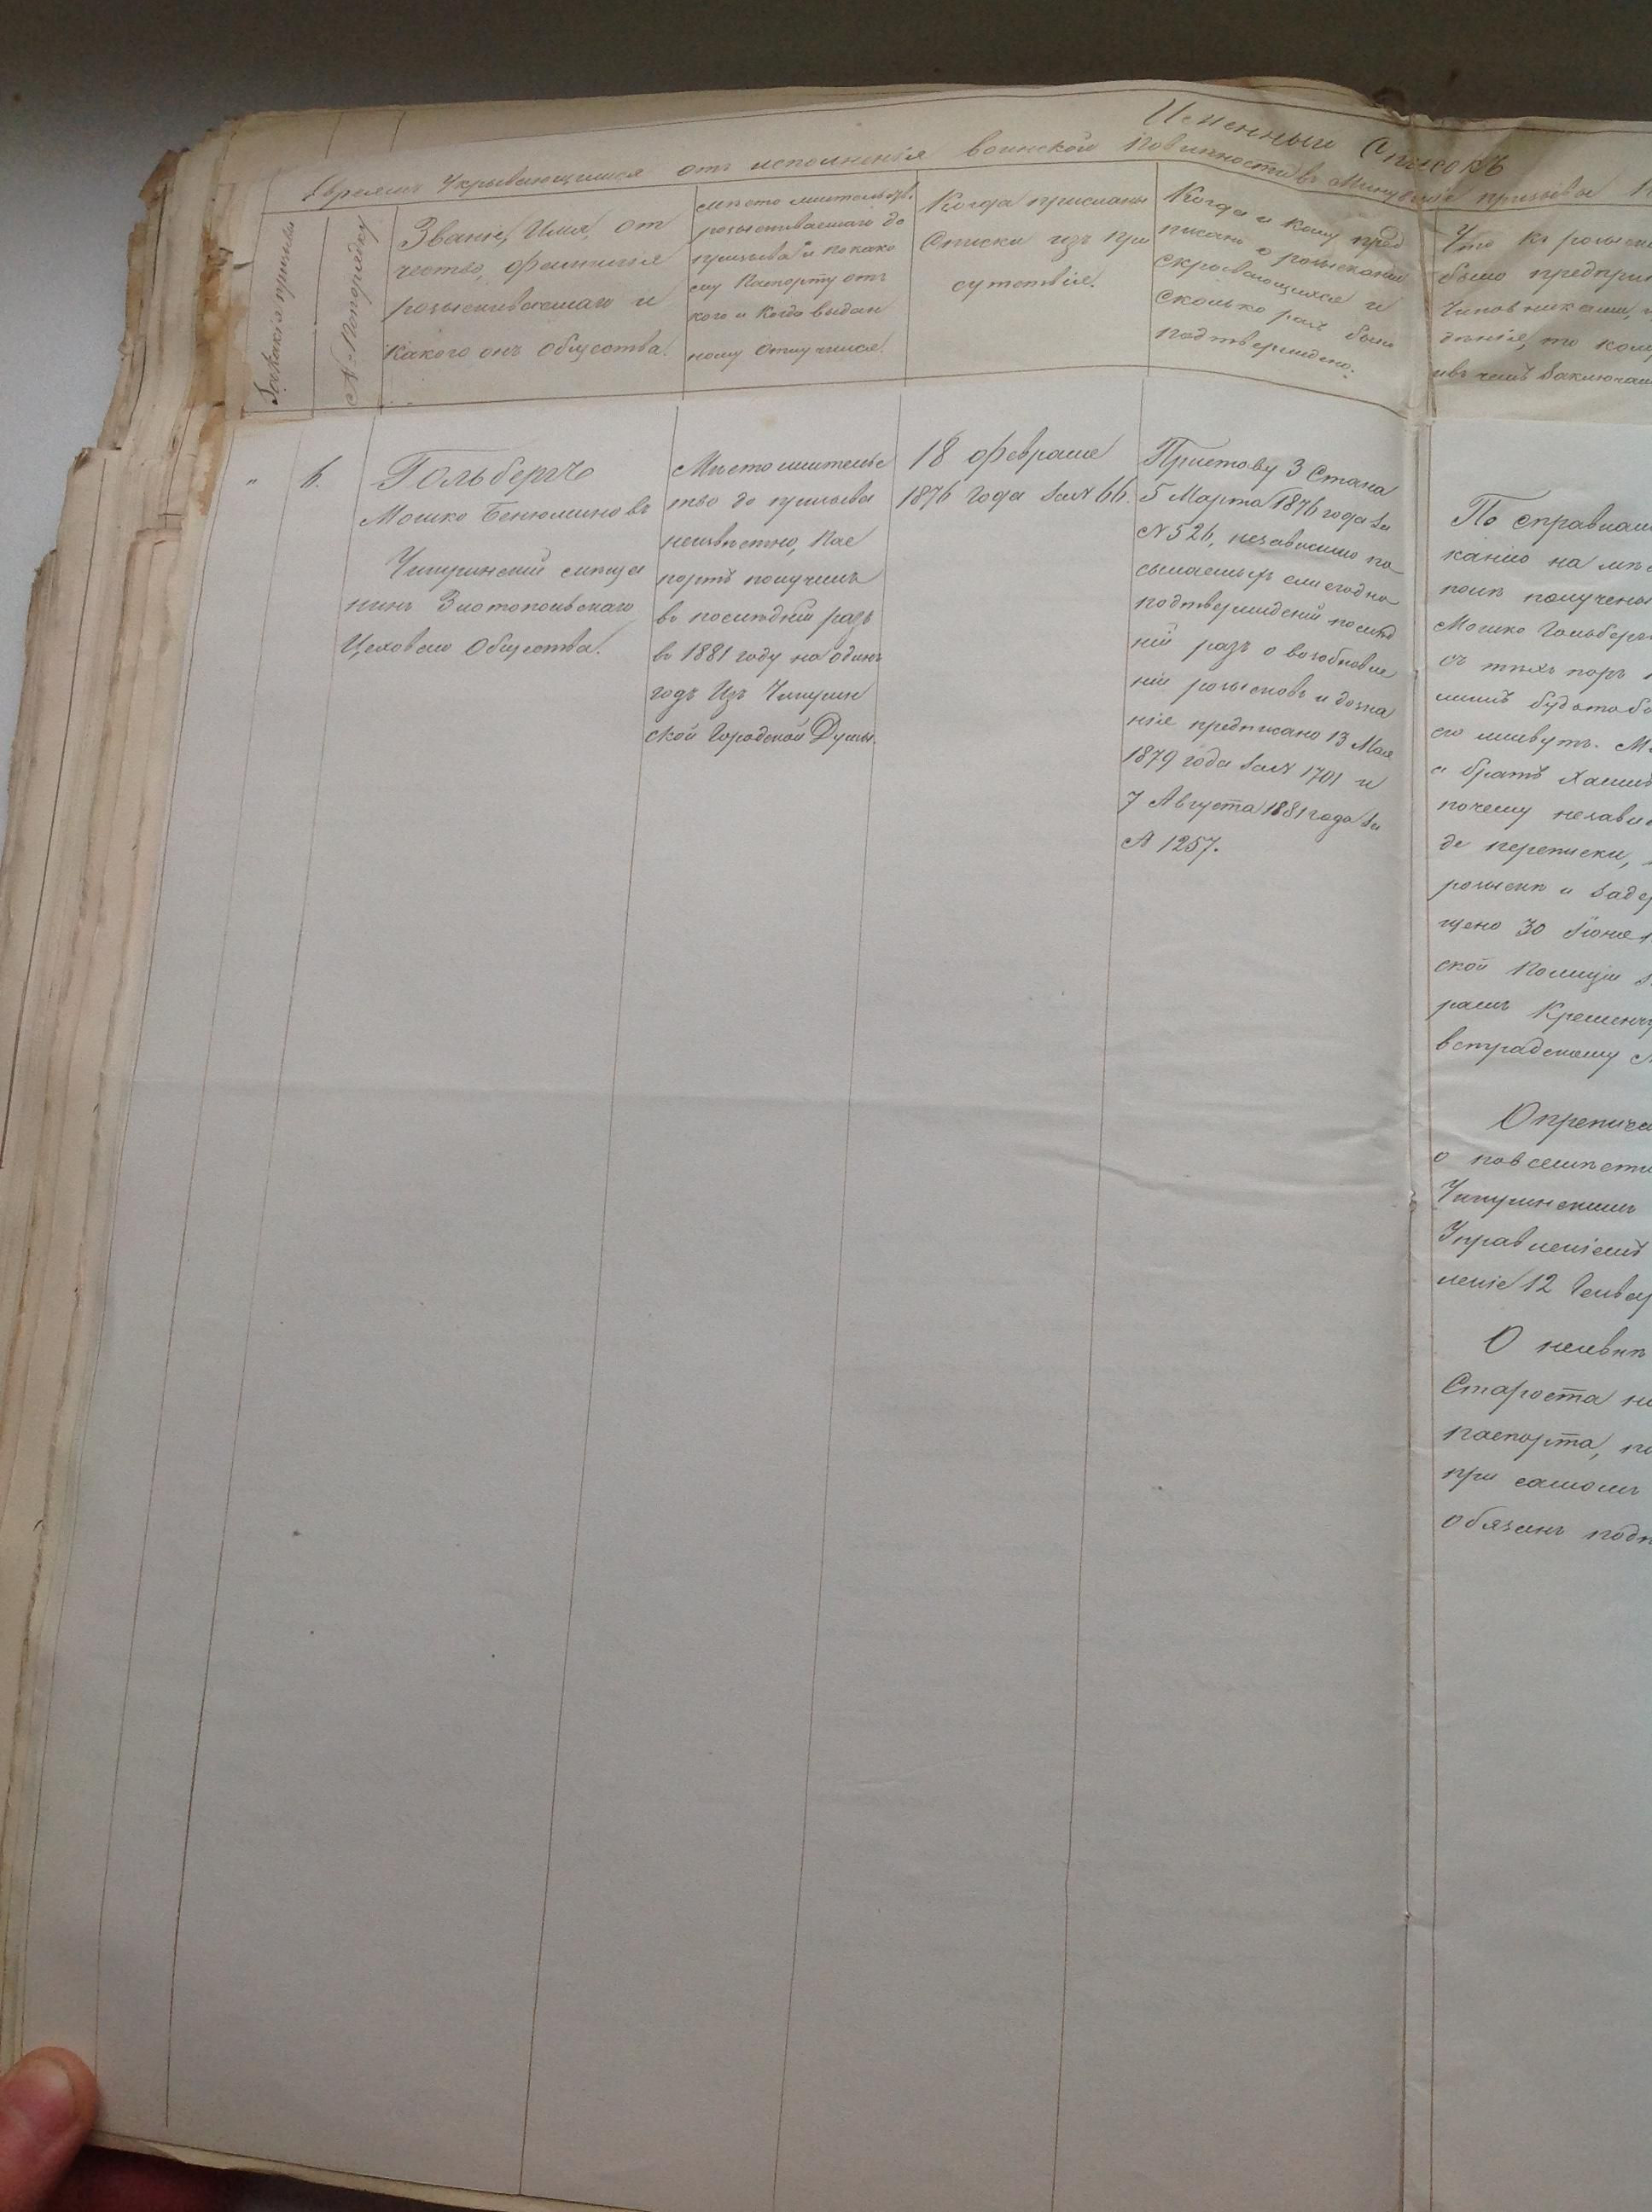 Именный Списокъ
Евреямъ Укрывающимся отъ исполненія воинской повинности въ Минувшіе призывы
За какіе призывы
№ По порядку
Званіе, Имя, от
чество, фамилія
розыскиваемаго и
какого онъ общества.
Место жительства
розыскиваемаго до
призыва и по како
му Паспорту отъ
кого и когда выдан
ному отлучился.
Когда присланы
Списки изъ При
сутствія.
Когда и кому пред
писано о розысканіи
скрывающихся и
сколько разъ было
подтверждено.
Что къ розыска
было предприн
Чиновниками,
денія, то кому
и въ чемъ заключа
" 6.
Гольбергъ
Мошко Бенюминовъ
Чигиринскій мѣща
нинъ Златопольскаго
Цеховаго Общества.
Мѣсто жительс
тво до призыва
неизвѣстно, Пас
портъ получилъ
въ послѣдній разъ
въ 1881 году на одинъ
годъ Изъ Чигирин
ской Городской Думы.
18 Февраля
1876 Года за № 66.
Приставу 3 Стана
5 Марта 1876 года за
№ 526, независимо по
сылаемыхъ ежегодно
подтвержденій послѣд
ній разъ о возобновле
ніи розысковъ и дозна
ніе предписано 13 Мая
1879 года за № 1701 и
7 Августа 1881 года за
№ 1257.
По справкам
канію на мѣс
получены
Мошко Гольберг
съ тѣхъ поръ
его живутъ. М
и братъ Хаим
почему независ
де переписки,
розыскѣ и задер
щено 30 Іюня 1
ской Полиціи
рамъ Кременчу
вспрадскому
О препича
о повсемѣстн
Чигиринскимъ
Управленіемъ
леніе 12 Январ
О неизвѣ
Староста не
паспорта, по
при самомъ
обязанъ подп